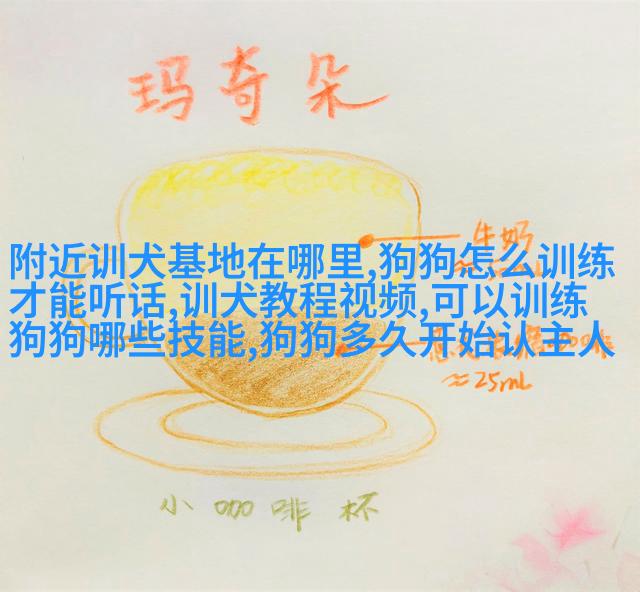 玛奇朵
牛奶
附近训犬基地在哪里,狗狗怎么训练
才能听话,训犬教程视频,可以训练
狗狗哪些技能,狗狗多久开始认主人
≈25mL
小咖啡杯